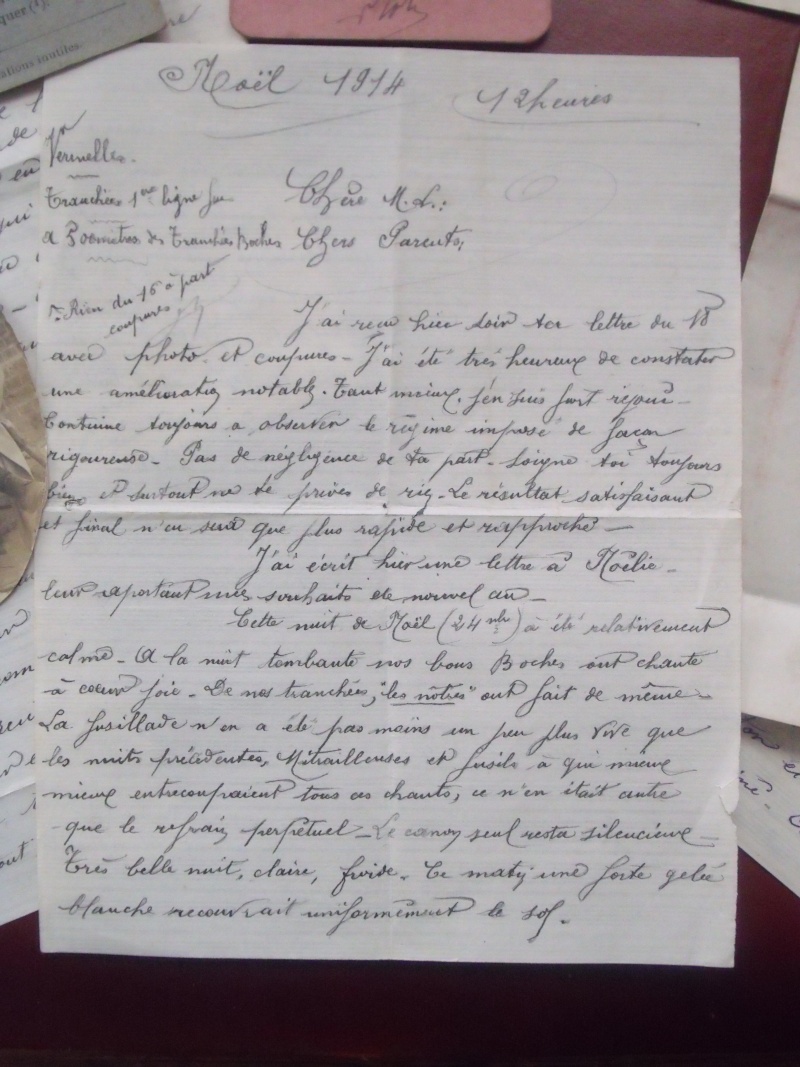 Noël 1914 12 heures
Vermelles.
Tranchées 1ère ligne
Chère M. L.:
a 300 mètres des Tranchées Boches
Chers Parents,
Rien du 16 à part
coupures
J'ai reçu hier soir ter lettre du 18
avec photo et coupures - J'ai été très heureux de constater
une amélioration notable. Tant mieux. j'en suis fort réjoui -
Continue toujours a observer le régime imposé de façon
rigoureuse - Pas de négligence de ta part - Soigne toi toujours
bien et surtout ne te prives de rien - Le résultat satisfaisant
et final n'en sera que plus rapide et rapproché -
J'ai écrit hier une lettre à Noëlie -
leur apportant mes souhaits de nouvel an -
Cette nuit de Noël (24 xbre) à été relativement
calme - A la nuit tombante nos bons Boches ont chanté
à cœur joie - De nos tranchées, "les nôtres" ont fait de même -
La fusillade n'en a été pas moins un peu plus vive que
les nuits précédentes, Mitrailleuses et fusils à qui mieux
mieux entrecoupaient tous ces chants, ce n'en était autre
que le refrain perpétuel - Le canon seul resta silencieux -
Très belle nuit, claire, froide - Ce matin une forte gelée
blanche recouvrait uniformément le sol.